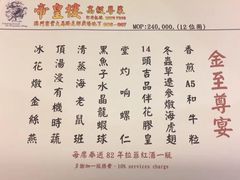 帝皇樓 高級粵菜
MOP:240,000, (12位用)
金至尊宴
香煎A5和牛粒
冬蟲草遼參燉海虎翅
14頭吉品伴花膠皇
堂灼响螺仁
黑魚子水晶龍蝦球
清蒸海老鼠斑
頂湯浸有機時蔬
冰花燉金絲燕
每席奉送82年拉菲紅酒一瓶
多謝加一服務費 - 10% services charge